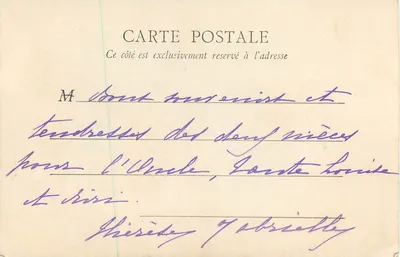 CARTE POSTALE
Ce côté est exclusivement reservé à l'adresse
M souvenirs et
tendresses des deux nièces
pour l'Oncle, tante Louise
et
Thérèse Gabrielle